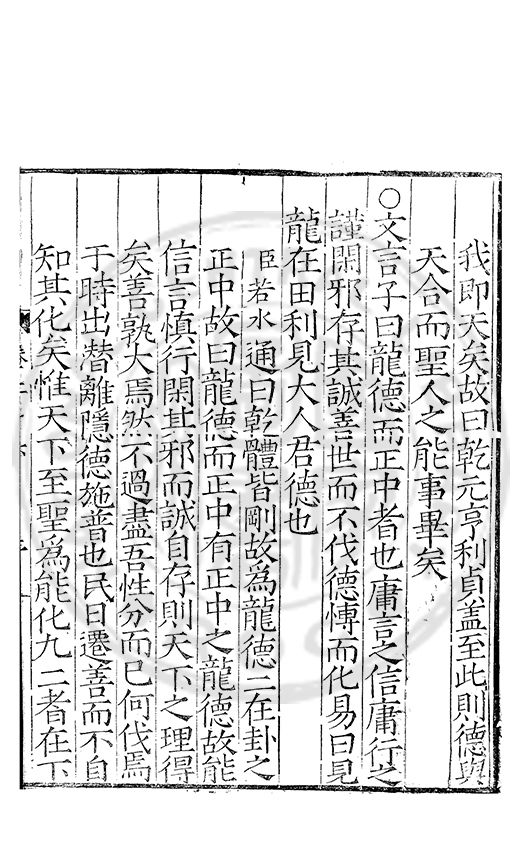 我即天矣故曰乾元亨利貞蓋至此則德與
天合而聖人之能事畢矣
○文言子曰龍德而正中者也庸言之信庸行之
謹閑邪存其誠善世而不伐德博而化易曰見
龍在田利見大人君德也
臣若水通曰乾體皆剛故為龍德二在卦之
正中故曰龍德而正中有正中之龍德故能
信言慎行閑其邪而誠自存則天下之理得
矣善孰大焉然不過盡吾性分而已何伐焉
于時出潛離隱德施普也民日遷善而不自
知其化矣惟天下至聖為能化九二者在下